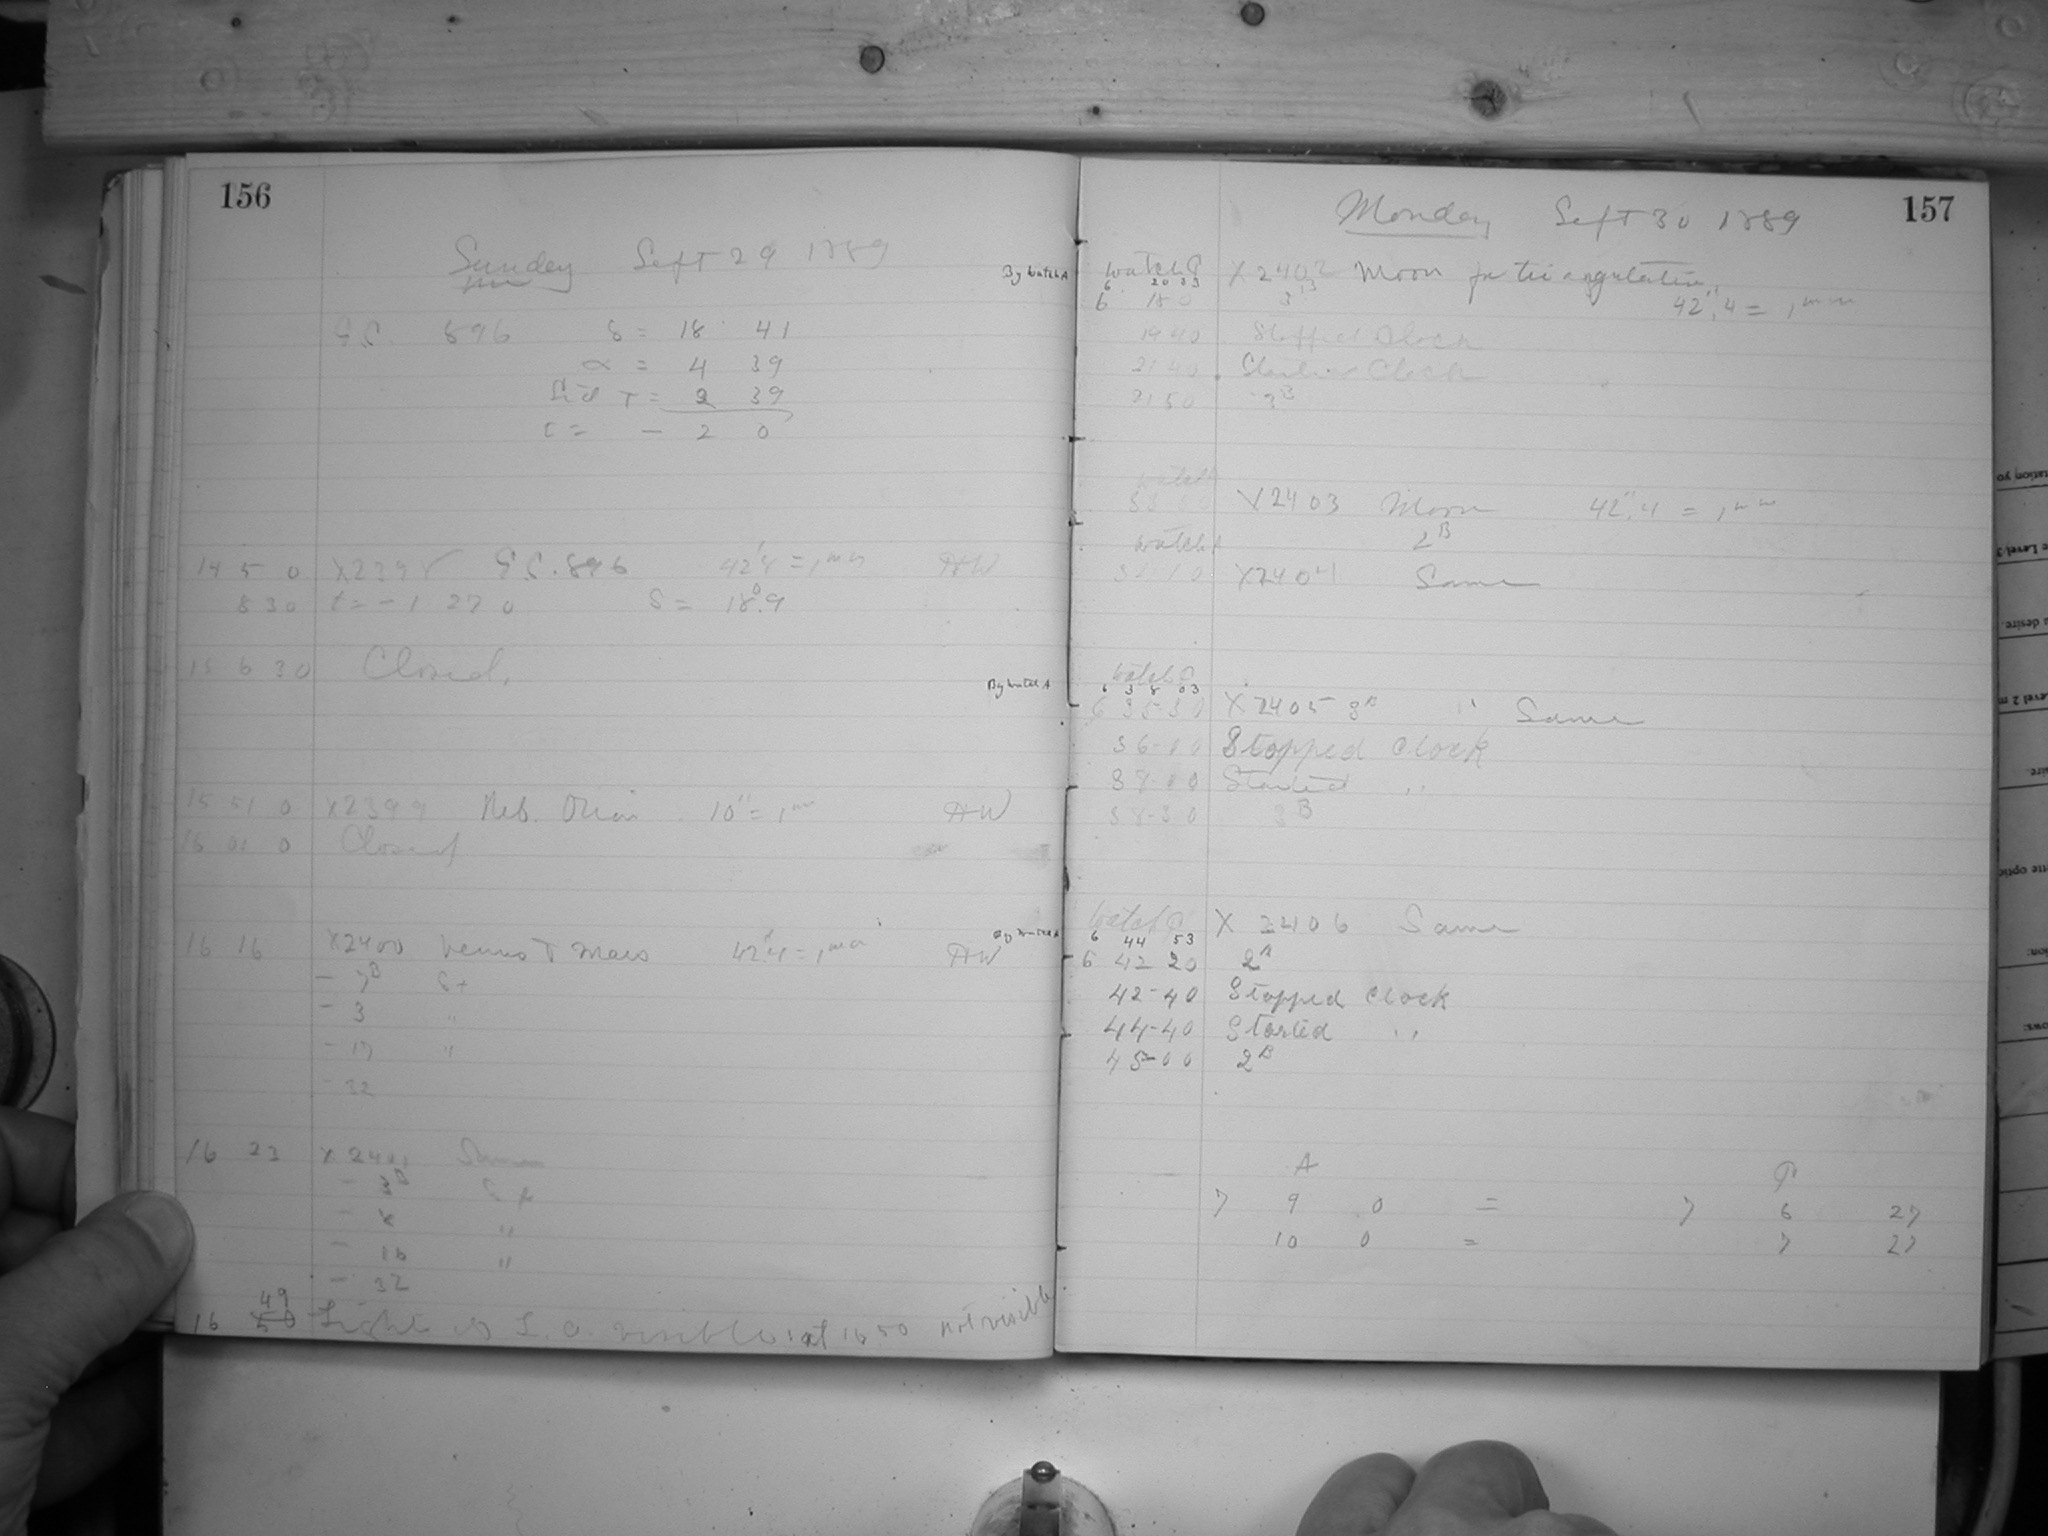 156
Sunday Sept 29 1889
G.C. 896 δ = 18 41
α = 4 39
Sid T = 2 39
t = - 2 0
14 5 0 X2398 G.C. 896 42".4 = 1mm AW
8 30 t = - 1 27 0 δ = 18°.9
15 6 30 Closed.
15 51 0 X2399 Neb. Orion 10" = 1mm AW
16 01 0 Closed
16 16 X2400 Venus & Mars 42".4 = 1mm AW
- 3
- 32
16 23 X 2401 Same
- 16 "
- 32
49
16 50 Light is visible at 16 50 not visible
157
Monday Sept 30 1889
By watch A Watch P X2402 Moon for triangulation
6 20 33
6 18 0 42".4 = 1mm
19 40 Stopped Clock
21 40 Started Clock
21 50 3B
X2403 Moon 42".4 = 1mm
Watch 2B
X2404 Same
Watch P
By watch A 6 38 03
6 35 30 X 2405 " Same
36-00 Stopped Clock
38-00 Started "
38-30 3B
Watch P X 2406 Same
By watch A 6 44 53
6 42 20 2A
42-40 Stopped Clock
44-40 Started "
45-00 2B
A P
7 9 0 = 7 6 27
10 0 = 7 27